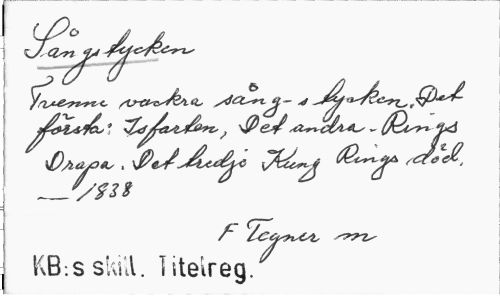 Sångstycken
Tvenne vackra sång-stycken. Det
första: Isfarten, Det andra - Rings
Drapa. Det tredje Kung Rings död.
— 1838
F Tegner m
KB:s skill. Titelreg.